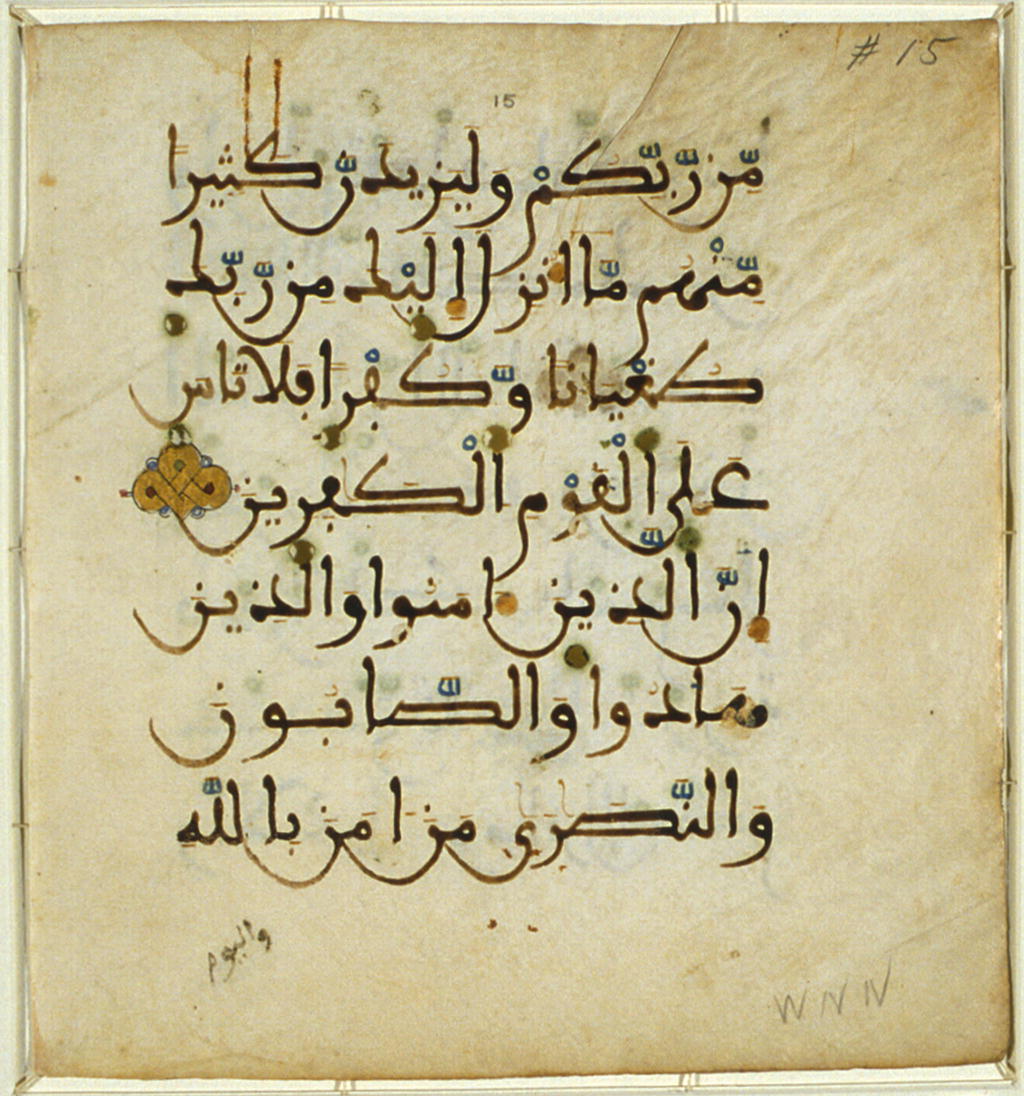 # 15
15
مِّن رَّبِّكُمْ وَلَيَزِيدَنَّ كَثِيرًا
مِّنْهُم مَّا أُنزِلَ إِلَيْكَ مِن رَّبِّكَ
طُغْيَانًا وَكُفْرًا فَلَا تَأْسَ
عَلَى الْقَوْمِ الْكَفِرِينَ
إِنَّ الَّذِينَ ءَامَنُوا وَالَّذِينَ
هَادُوا وَالصَّابُونَ
وَالنَّصَرَى مَنْ ءَامَنَ بِاللَّهِ
واليوم